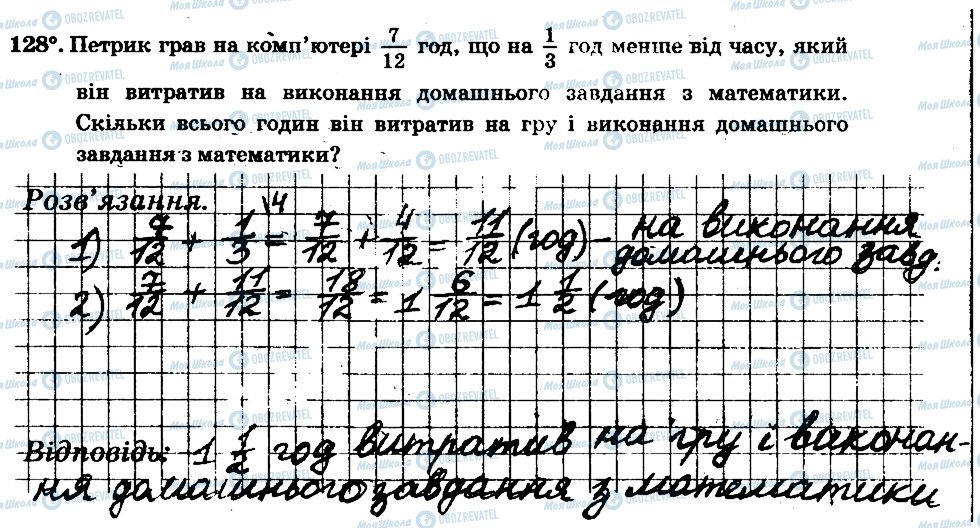 128°. Петрик грав на комп'ютері 7/12 год, що на 1/3 год менше від часу, який
він витратив на виконання домашнього завдання з математики.
Скільки всього годин він витратив на гру і виконання домашнього
завдання з математики?
Розв'язання.
1) 7/12 + 1/3 \4 = 7/12 + 4/12 = 11/12 (год) – на виконання
домашнього завд.
2) 7/12 + 11/12 = 18/12 = 1 6/12 = 1 1/2 (год)
Відповідь: 1 1/2 год витратив на гру і виконан-
ня домашнього завдання з математики